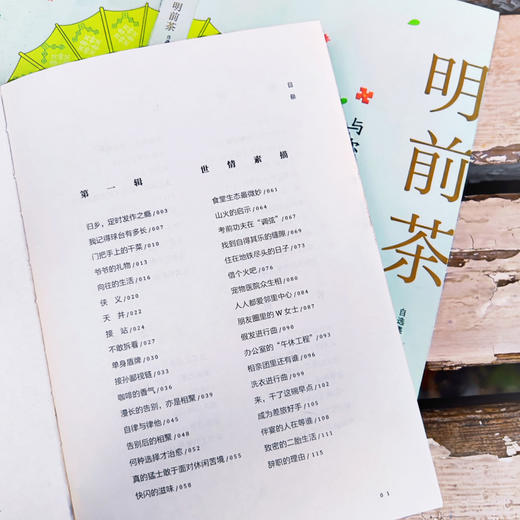 明前茶
目录
第一辑 世情素描
旧乡，定时发作之瘾/003
我记得球台有多长/007
门把手上的干菜/010
爷爷的礼物/013
向往的生活/016
侠义/020
天井/022
接站/024
不敢拆看/026
单身盾牌/030
接孙鄙视链/033
咖啡的香气/036
漫长的告别，亦是相聚/039
自律与律他/045
告别后的相聚/048
何种选择才治愈/052
真的猛士敢于面对休闲苦境/055
快闪的滋味/058
食堂生态最微妙/061
山火的启示/064
考前功夫在“调弦”/067
找到自得其乐的缝隙/069
住在地铁尽头的日子/073
借个火吧/076
宠物医院众生相/080
人人都爱邻里中心/084
朋友圈里的W女士/087
假发进行曲/090
办公室的“午休工程”/093
相亲团里还有谁/096
洗衣进行曲/099
来，干了这碗早点/102
成为差旅好手/105
伴宴的人在等谁/108
致密的二胎生活/111
辞职的理由/115
01
明前茶
自选集